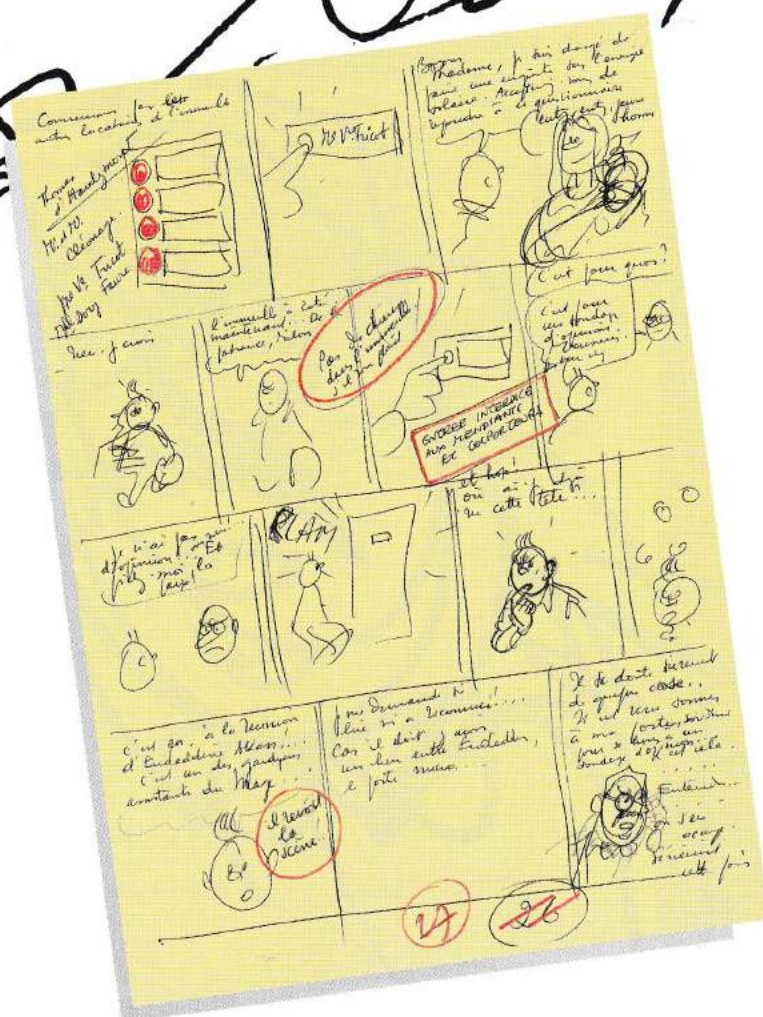 Commençons par les
autres locataires d'l'immeuble
Thomas
d'Hartimont
M. et M.
Cléonage.
Mme Vve Tricot
Faure
Mme Vve Tricot
Bonjour
Madame, je suis chargé de
faire une enquête sur l'énergie
solaire. Acceptez-vous de
répondre à ce questionnaire
entrez, entrez, jeune
homme
l'immeuble à côté
maintenant... De la
patience, Milou
Pas de chiens
dans l'immeuble
s'il vous plaît
ENTREE INTERDITE
AUX MENDIANTS
ET COLPORTEURS
C'est pour quoi?
C'est pour
un sondage
d'opinion.
Je n'ai pas
d'opinion... Et
fichez-moi la
paix!
CLAM
et hop!
où ai-je déjà
vu cette tête...
c'est ça.. à la réunion
d'Endaddine Akass!...
C'est un des gardiens
assistants du Mage...
il revoit
la
scène!
Je me demande si
lui m'a reconnu!...
Car il doit y avoir
un lien entre Endaddine,
Il se doute sûrement
de quelque chose..
Il est venu sonner
à ma porte
pour se livrer à un
sondage d'opinion..
Entendu...
on s'en
occupe
sérieusement
cette fois
27
26